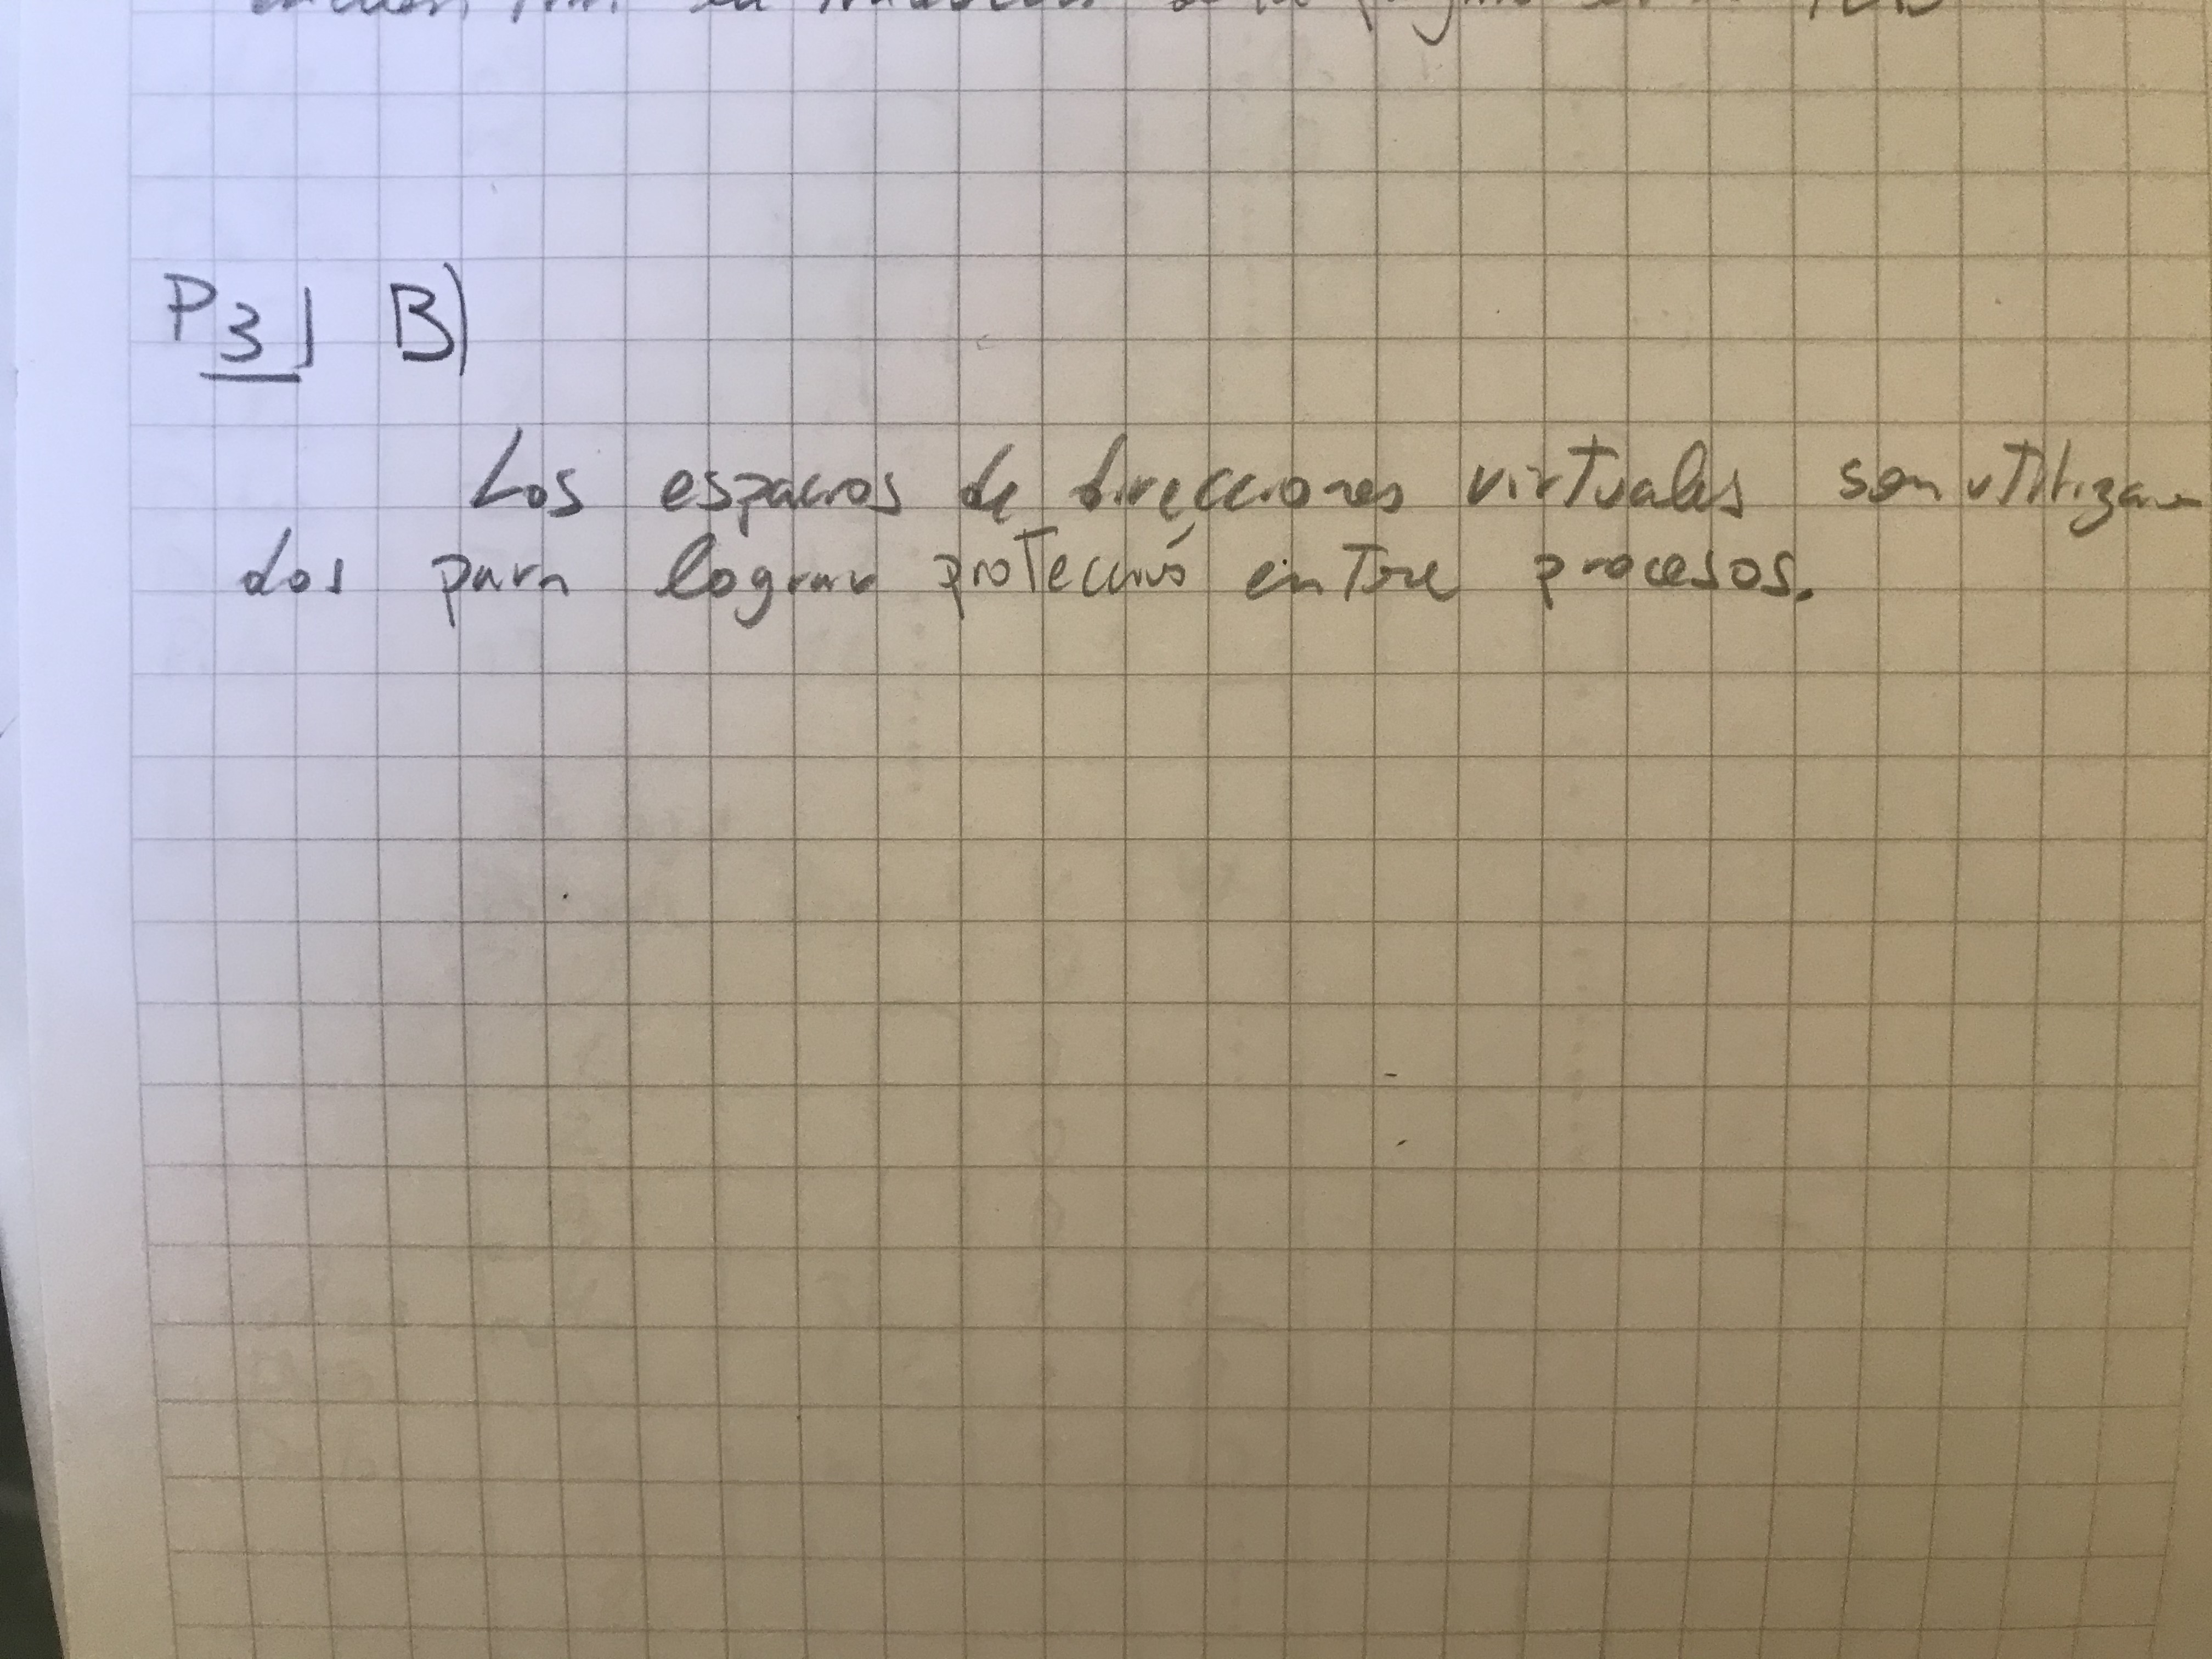 P3) B)
Los espacios de direcciones virtuales son utiliza-
dos para lograr proteccinó entre procesos.